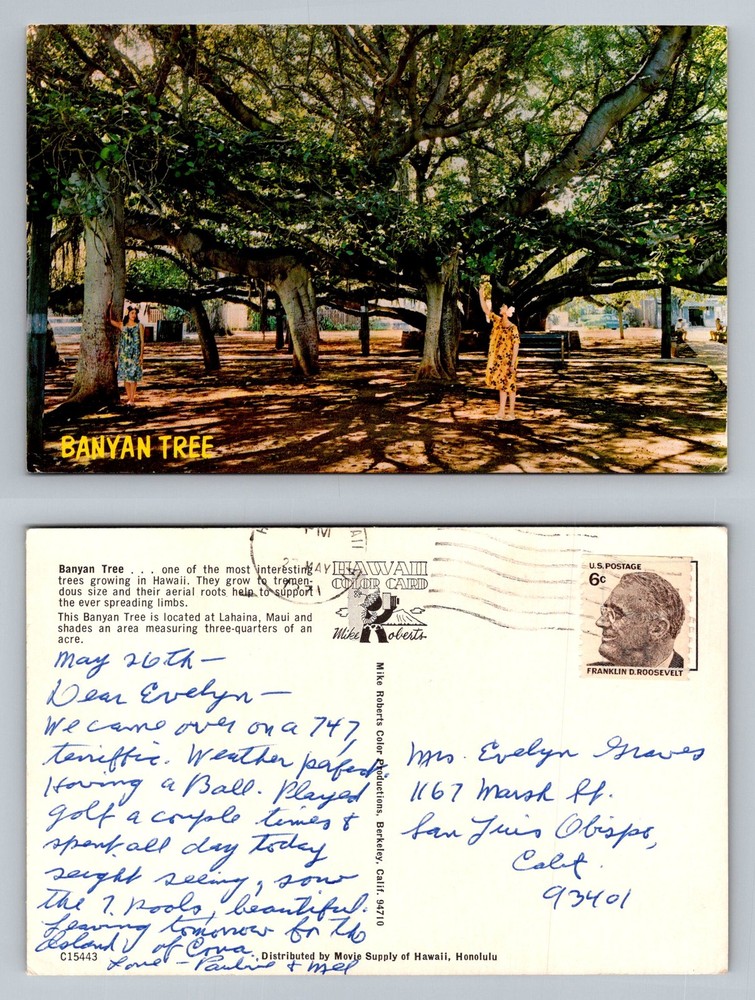 BANYAN TREE
Banyan Tree . . . one of the most interesting
trees growing in Hawaii. They grow to tremen-
dous size and their aerial roots help to support
the ever spreading limbs.
This Banyan Tree is located at Lahaina, Maui and
shades an area measuring three-quarters of an
acre.
May 26th —
Dear Evelyn —
We came over on a 747,
terriffic. Weather
Having a Ball. Played
golf a couple times &
spent all day today
seight seeing, saw
the 7 pools, beautiful.
Leaving tomorrow for the
Island of Cona.
Love - Pauline + Mel
C15443
Distributed by Movie Supply of Hawaii, Honolulu
PM
MAY
HAWAII
COLOR CARD
Mike Roberts
Mike Roberts Color Productions, Berkeley, Calif. 94710
U.S. POSTAGE
6c
FRANKLIN D. ROOSEVELT
Mrs. Evelyn Graves
1167 Marsh St.
San Luis Obispo,
Calif.
93401